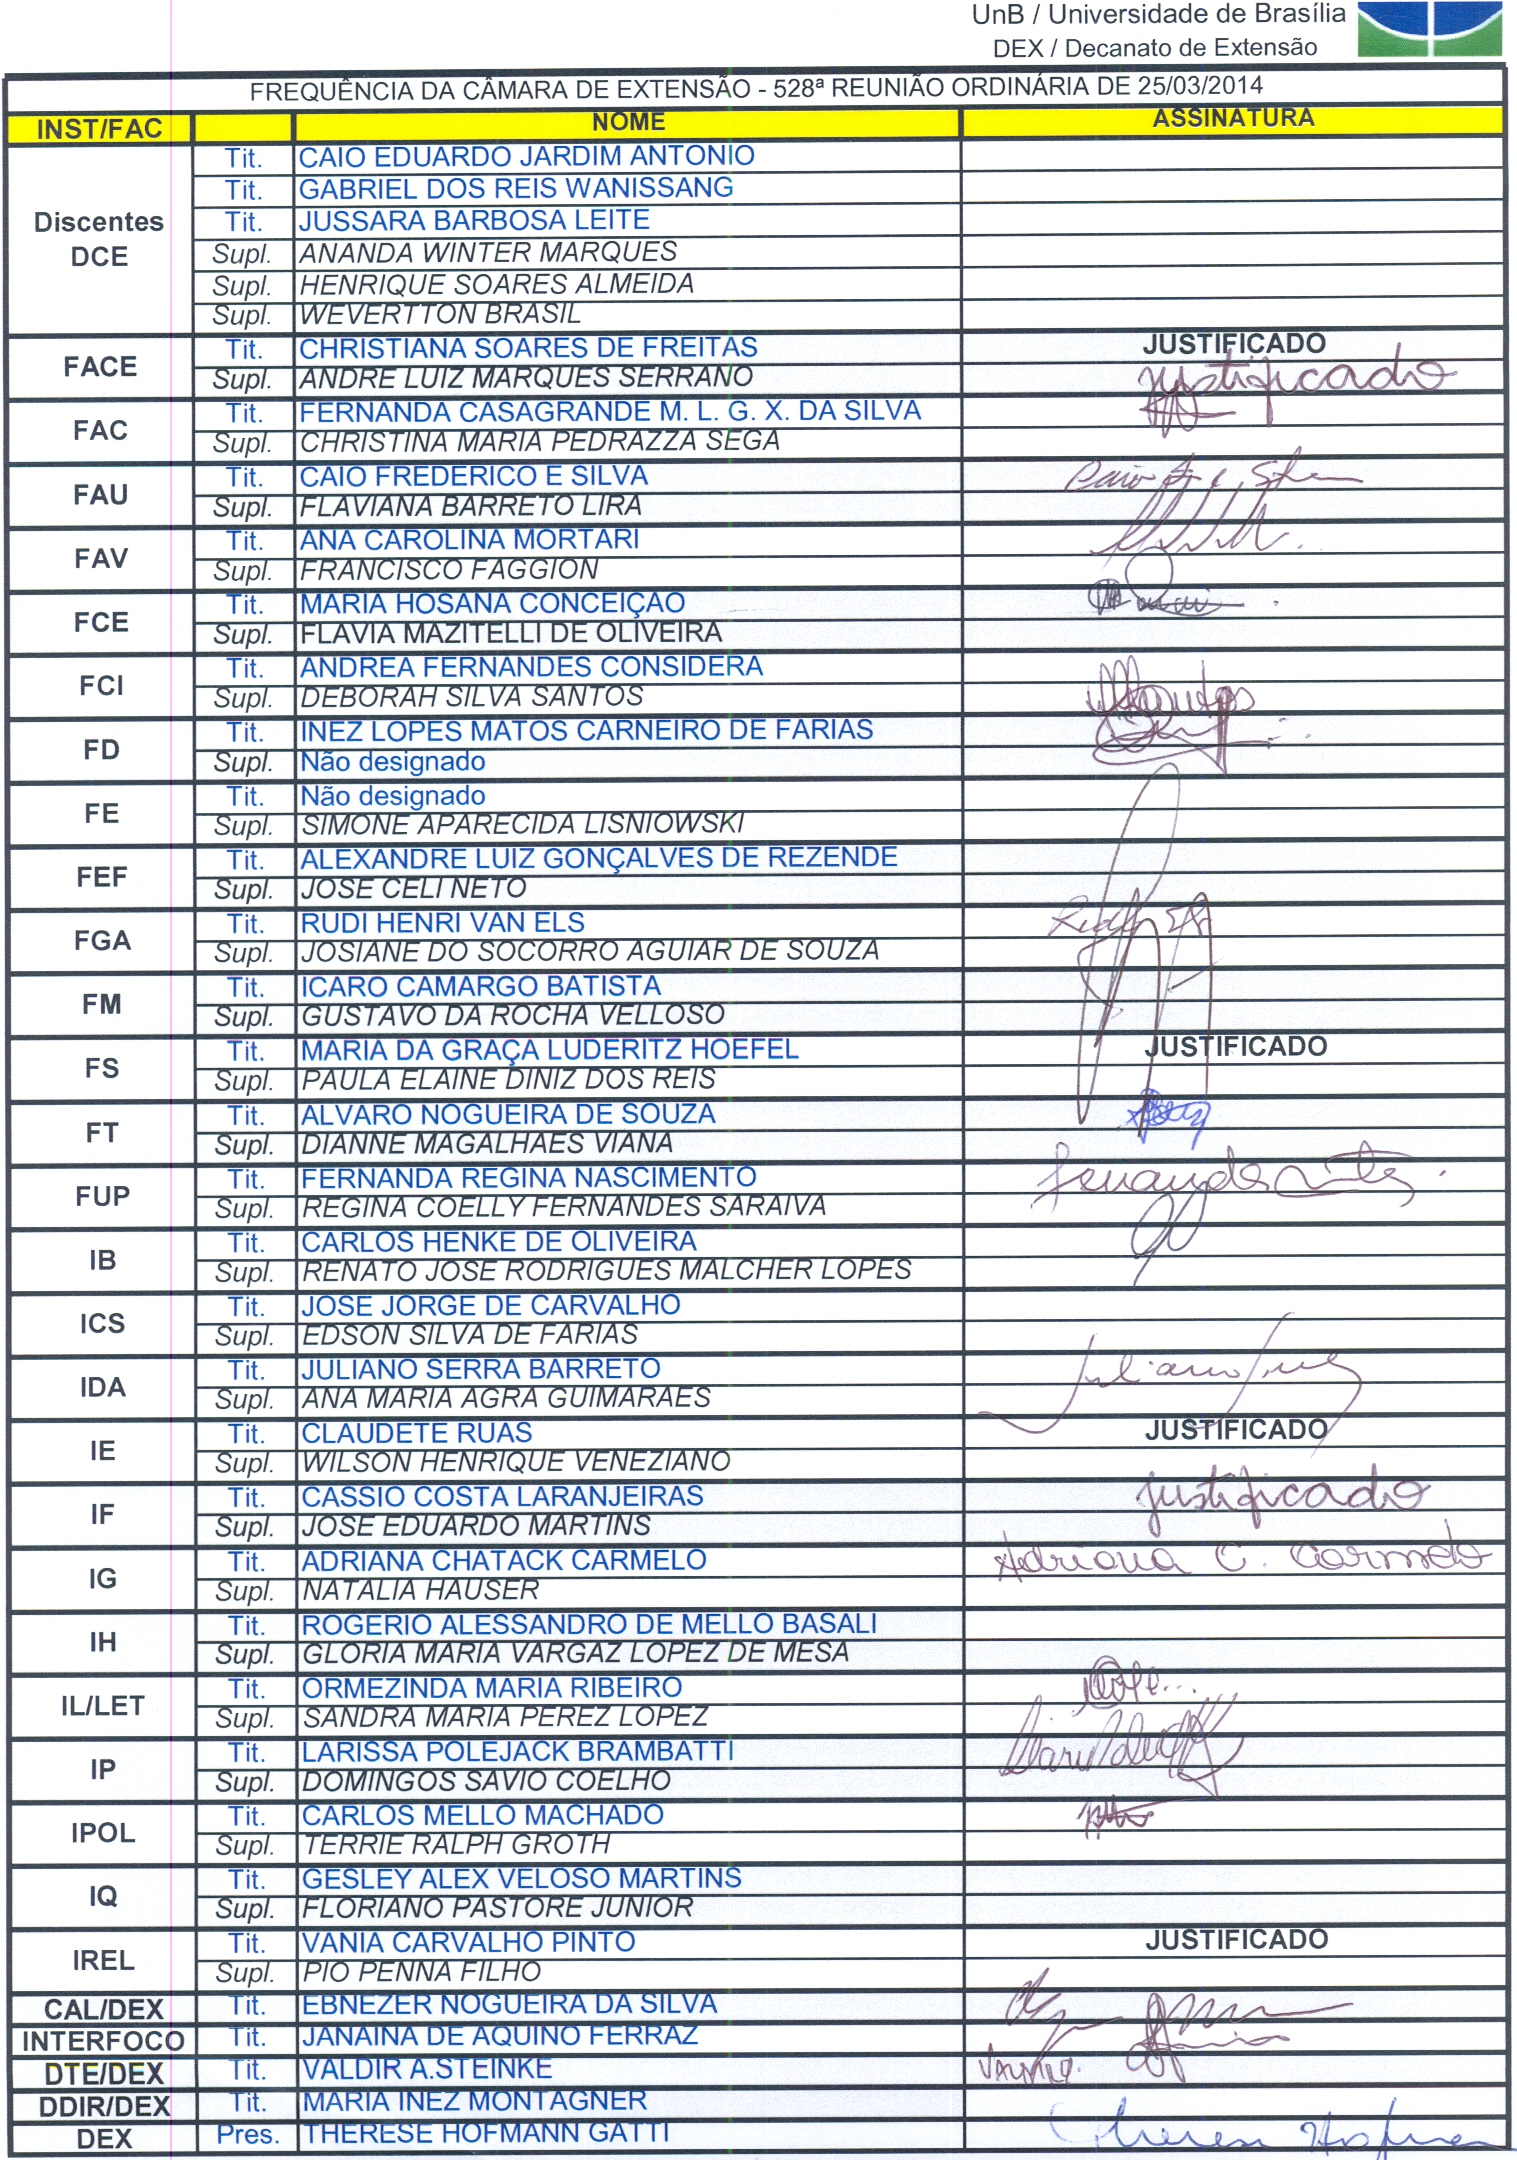 UnB / Universidade de Brasília
DEX / Decanato de Extensão
FREQUÊNCIA DA CÂMARA DE EXTENSÃO - 528ª REUNIÃO ORDINÁRIA DE 25/03/2014
INST/FAC NOME ASSINATURA
Discentes DCE
Tit. CAIO EDUARDO JARDIM ANTONIO
Tit. GABRIEL DOS REIS WANISSANG
Tit. JUSSARA BARBOSA LEITE
Supl. ANANDA WINTER MARQUES
Supl. HENRIQUE SOARES ALMEIDA
Supl. WEVERTTON BRASIL
FACE
Tit. CHRISTIANA SOARES DE FREITAS JUSTIFICADO
Supl. ANDRE LUIZ MARQUES SERRANO justificado
FAC
Tit. FERNANDA CASAGRANDE M. L. G. X. DA SILVA
Supl. CHRISTINA MARIA PEDRAZZA SEGA
FAU
Tit. CAIO FREDERICO E SILVA
Supl. FLAVIANA BARRETO LIRA
FAV
Tit. ANA CAROLINA MORTARI
Supl. FRANCISCO FAGGION
FCE
Tit. MARIA HOSANA CONCEIÇAO
Supl. FLAVIA MAZITELLI DE OLIVEIRA
FCI
Tit. ANDREA FERNANDES CONSIDERA
Supl. DEBORAH SILVA SANTOS
FD
Tit. INEZ LOPES MATOS CARNEIRO DE FARIAS
Supl. Não designado
FE
Tit. Não designado
Supl. SIMONE APARECIDA LISNIOWSKI
FEF
Tit. ALEXANDRE LUIZ GONÇALVES DE REZENDE
Supl. JOSE CELI NETO
FGA
Tit. RUDI HENRI VAN ELS
Supl. JOSIANE DO SOCORRO AGUIAR DE SOUZA
FM
Tit. ICARO CAMARGO BATISTA
Supl. GUSTAVO DA ROCHA VELLOSO
FS
Tit. MARIA DA GRAÇA LUDERITZ HOEFEL JUSTIFICADO
Supl. PAULA ELAINE DINIZ DOS REIS
FT
Tit. ALVARO NOGUEIRA DE SOUZA
Supl. DIANNE MAGALHAES VIANA
FUP
Tit. FERNANDA REGINA NASCIMENTO
Supl. REGINA COELLY FERNANDES SARAIVA
IB
Tit. CARLOS HENKE DE OLIVEIRA
Supl. RENATO JOSE RODRIGUES MALCHER LOPES
ICS
Tit. JOSE JORGE DE CARVALHO
Supl. EDSON SILVA DE FARIAS
IDA
Tit. JULIANO SERRA BARRETO
Supl. ANA MARIA AGRA GUIMARAES
IE
Tit. CLAUDETE RUAS JUSTIFICADO
Supl. WILSON HENRIQUE VENEZIANO
IF
Tit. CASSIO COSTA LARANJEIRAS justificado
Supl. JOSE EDUARDO MARTINS
IG
Tit. ADRIANA CHATACK CARMELO Adriana C. Carmelo
Supl. NATALIA HAUSER
IH
Tit. ROGERIO ALESSANDRO DE MELLO BASALI
Supl. GLORIA MARIA VARGAZ LOPEZ DE MESA
IL/LET
Tit. ORMEZINDA MARIA RIBEIRO
Supl. SANDRA MARIA PEREZ LOPEZ
IP
Tit. LARISSA POLEJACK BRAMBATTI
Supl. DOMINGOS SAVIO COELHO
IPOL
Tit. CARLOS MELLO MACHADO
Supl. TERRIE RALPH GROTH
IQ
Tit. GESLEY ALEX VELOSO MARTINS
Supl. FLORIANO PASTORE JUNIOR
IREL
Tit. VANIA CARVALHO PINTO JUSTIFICADO
Supl. PIO PENNA FILHO
CAL/DEX Tit. EBNEZER NOGUEIRA DA SILVA
INTERFOCO Tit. JANAINA DE AQUINO FERRAZ
DTE/DEX Tit. VALDIR A.STEINKE
DDIR/DEX Tit. MARIA INEZ MONTAGNER
DEX Pres. THERESE HOFMANN GATTI